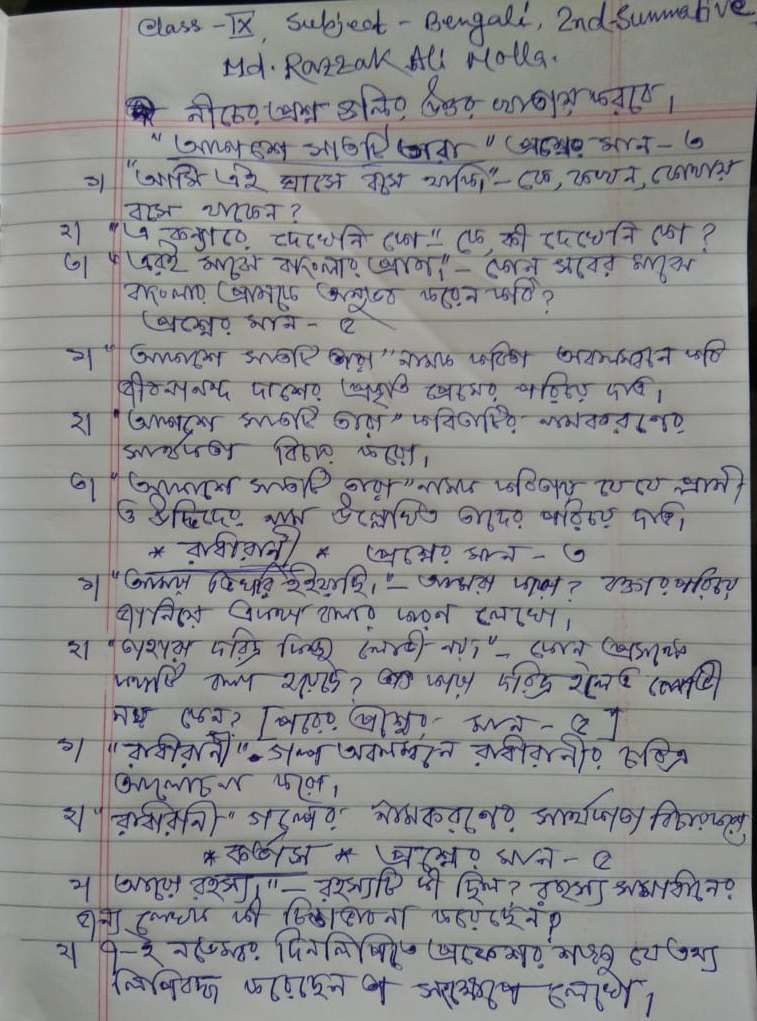 Class - IX, Subject - Bengali, 2nd Summative
Md. Razzak Ali Molla.
নীচের প্রশ্ন গুলির উত্তর খাতায় করবে।
"আকাশে সাতটি তারা" প্রশ্নের মান - ৩
১। "আমি এই ঘাসে বসে থাকি" - কে, কখন, কোথায়
বসে থাকেন?
২। "এ কন্যারে দেখেনি কো" - কে, কী দেখেনি কো?
৩। "এরই মাঝে বাংলার প্রাণ।" - কোন সবের মাঝে
বাংলার প্রাণকে অনুভব করেন কবি?
প্রশ্নের মান - ৫
১। "আকাশে সাতটি তারা" নামক কবিতা অবলম্বনে কবি
জীবনানন্দ দাশের প্রকৃতি প্রেমের পরিচয় দাও।
২। "আকাশে সাতটি তারা" কবিতাটির নামকরণের
সার্থকতা বিচার করো।
৩। "আকাশে সাতটি তারা" নামক কবিতায় যে যে প্রাণী
ও উদ্ভিদের নাম উল্লেখিত তাদের পরিচয় দাও।
* রাধারাণী * প্রশ্নের মান - ৩
১। "আমরা ভিখারি হইয়াছি।" - আমরা কারা? বক্তার পরিচয়
জানিয়ে একথা বলার কারণ লেখো।
২। "তাহারা দরিদ্র কিন্তু লোভী নয়।" - কোন প্রসঙ্গে
কথাটি বলা হয়েছে? কারা দরিদ্র হলেও লোভী
নয় কেন? [পরের প্রশ্নের মান - ৫]
১। "রাধারানী" গল্প অবলম্বনে রাধারানীর চরিত্র
আলোচনা করো।
২। "রাধারানী" গল্পের নামকরণের সার্থকতা বিচার করো
* কর্ভাস * প্রশ্নের মান - ৫
১। আরো রহস্য।" - রহস্যটি কী ছিল? রহস্য সমাধানের
জন্য লেখক কী চিন্তাভাবনা করেছেন?
২। ৭-ই নভেম্বর দিনলিপিতে প্রফেসর শঙ্কু যে তথ্য
লিপিবদ্ধ করেছেন তা সংক্ষেপে লেখো।